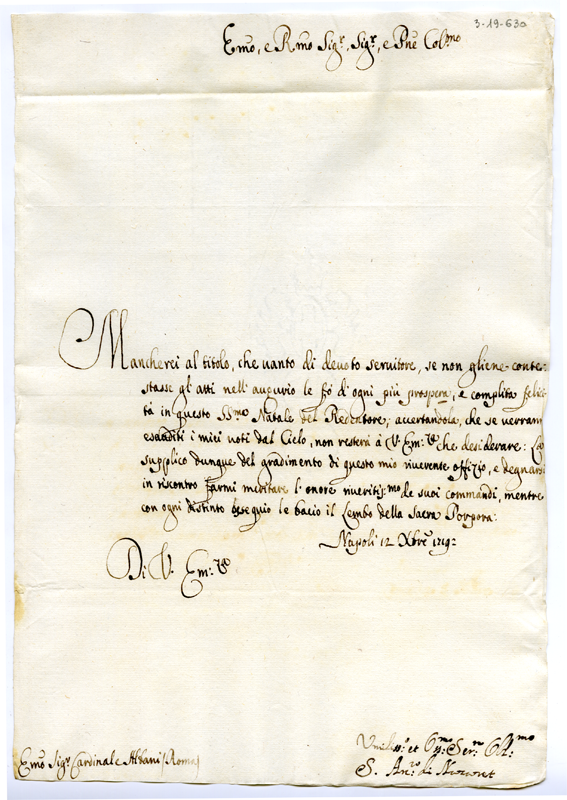 3-19-630
Emo, e Rmo Sigr, Sigr, e Pne Colmo
Mancherei al titolo, che vanto di devoto servitore, se non gliene conte-
stasse gl'atti nell'augurio le fò d'ogni più prospera, e complita felici-
tà in questo SSmo Natale del Redentore; accertandola, che se verrano
esauditi i miei voti dal Cielo, non resterà à V. Em:za che desiderare: La
supplico dunque del gradimento di questo mio riverente offizio, e degnarsi
in riscontro farmi meritare l'onore riveritis:mo de suoi commandi, mentre
con ogni distinto ossequio le bacio il Lembo della Sacra Porpora:
Napoli 12 Xbre 1719:
Di V. Em:za
Emo Sigr Cardinale Albani (Roma)
et Ser:
S. di